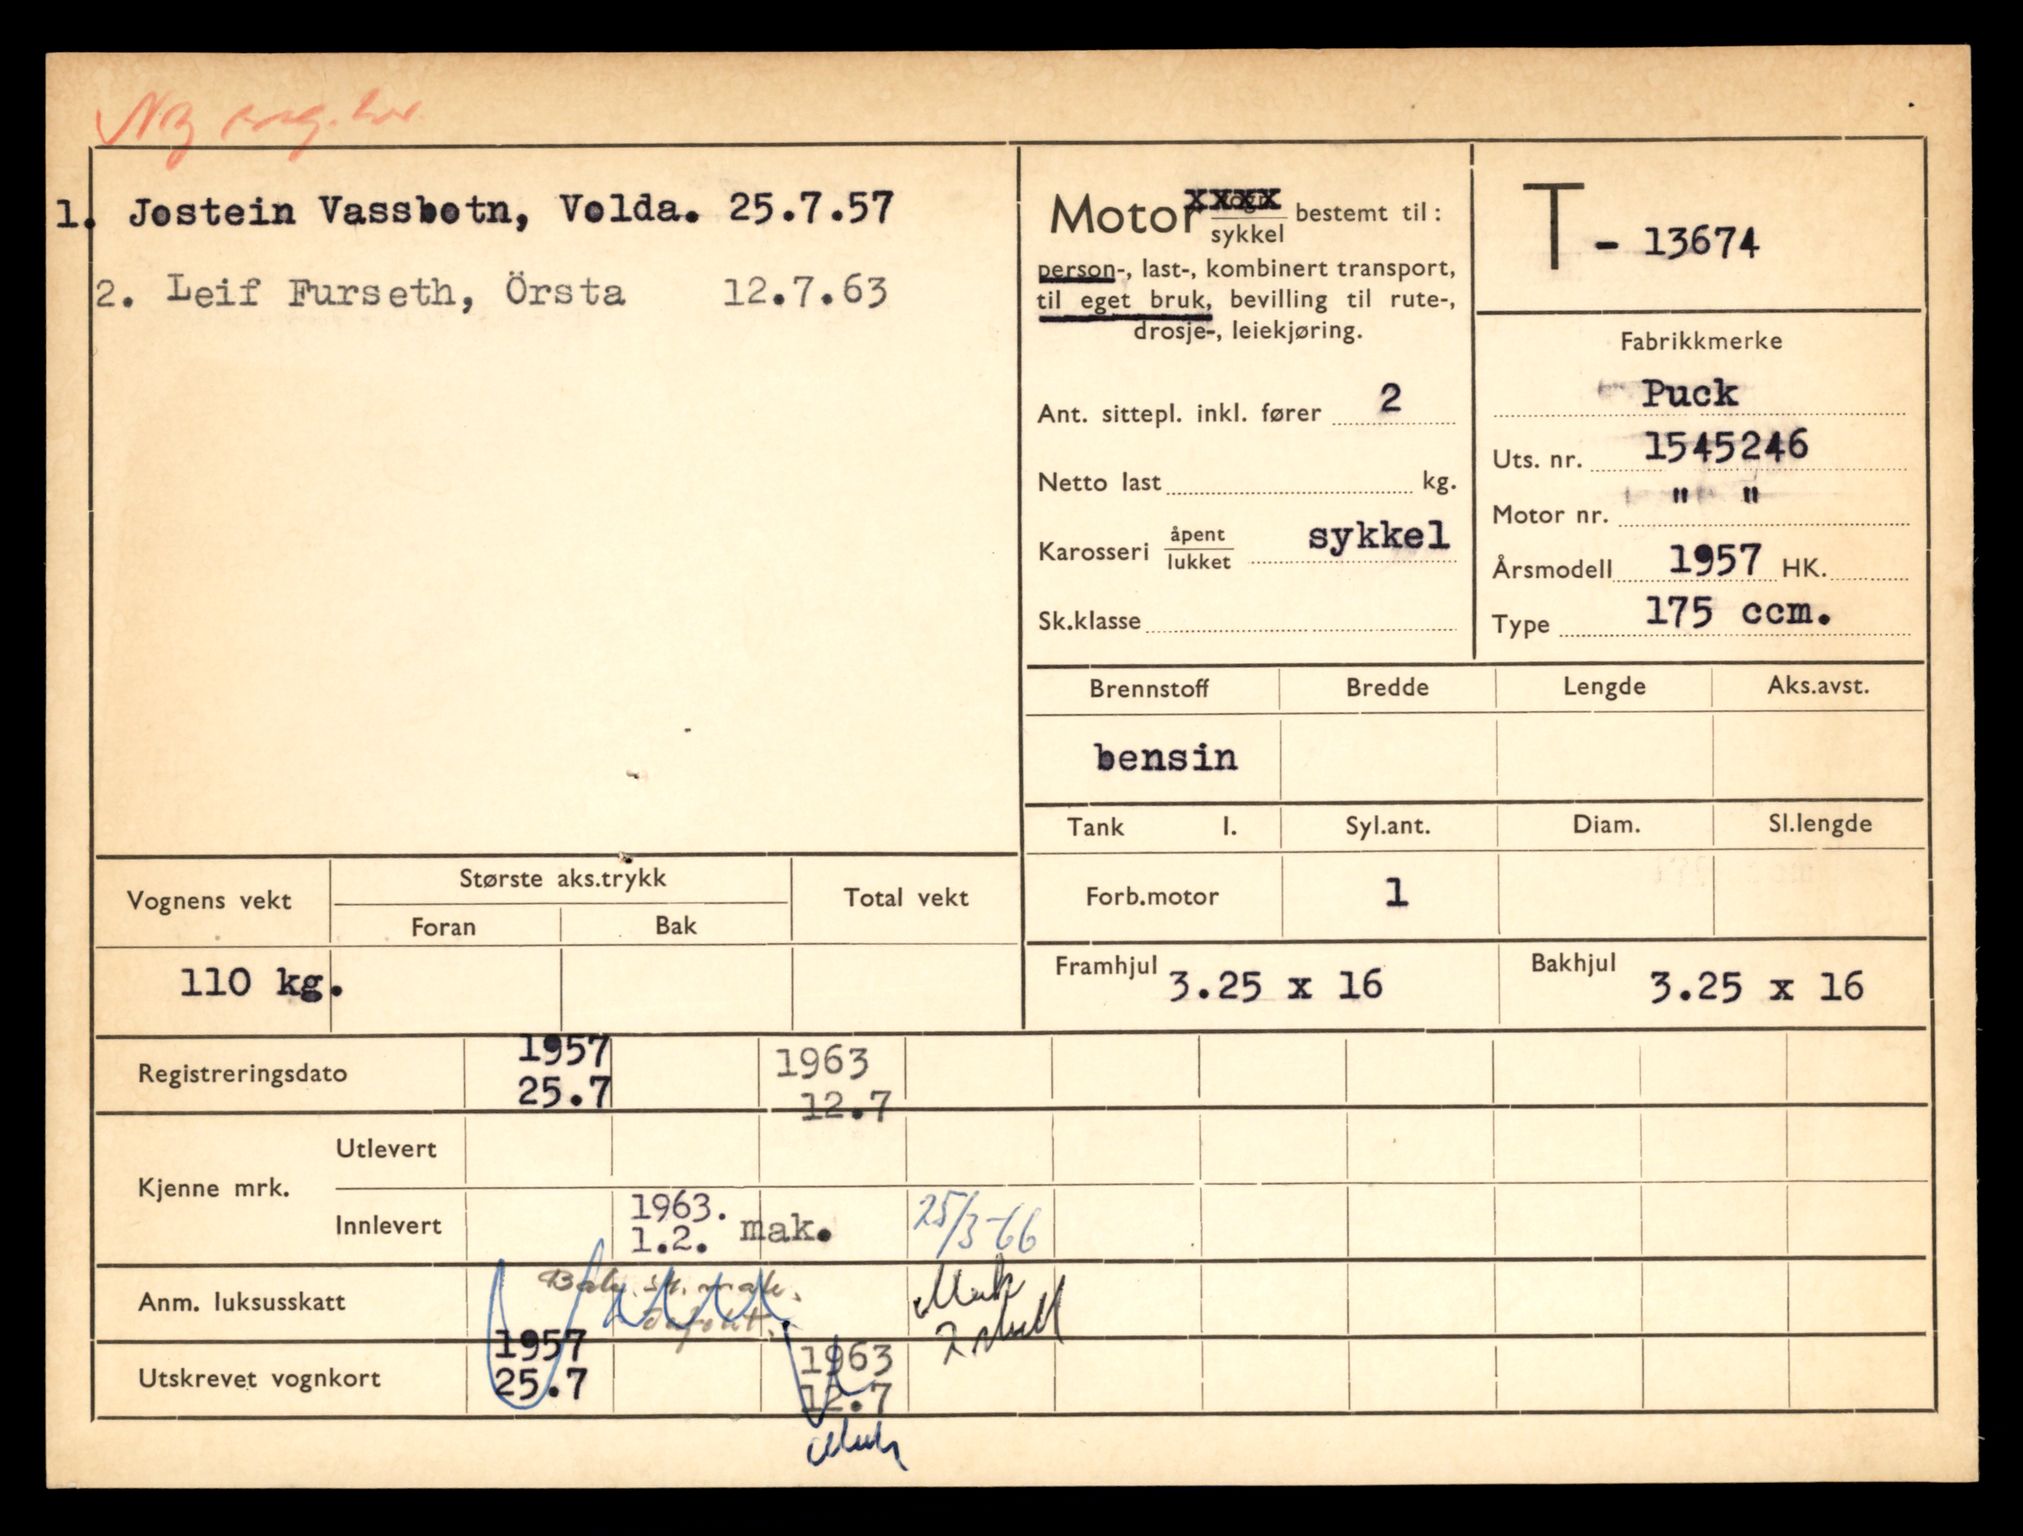 1. Jostein Vassbotn, Volda. 25.7.57
2. Leif Furseth, Örsta 12.7.63
Motor xxxx sykkel bestemt til:
person-, last-, kombinert transport,
til eget bruk, bevilling til rute-,
drosje-, leiekjøring.
Ant. sittepl. inkl. fører 2
Netto last kg.
Karosseri åpent lukket sykkel
Sk.klasse
T - 13674
Fabrikkmerke
Puck
Uts. nr. 1545246
Motor nr. " "
Årsmodell 1957 HK.
Type 175 ccm.
Brennstoff Bredde Lengde Aks.avst.
bensin
Tank l. Syl.ant. Diam. Sl.lengde
Forb.motor 1
Framhjul 3.25 x 16 Bakhjul 3.25 x 16
Vognens vekt Største aks.trykk Total vekt
Foran Bak
110 kg.
Registreringsdato 1957 1963
25.7 12.7
Kjenne mrk. Utlevert
Innlevert 1963. 1.2. mak. 25/3-66
Anm. luksusskatt
Utskrevet vognkort 1957 1963
25.7 12.7